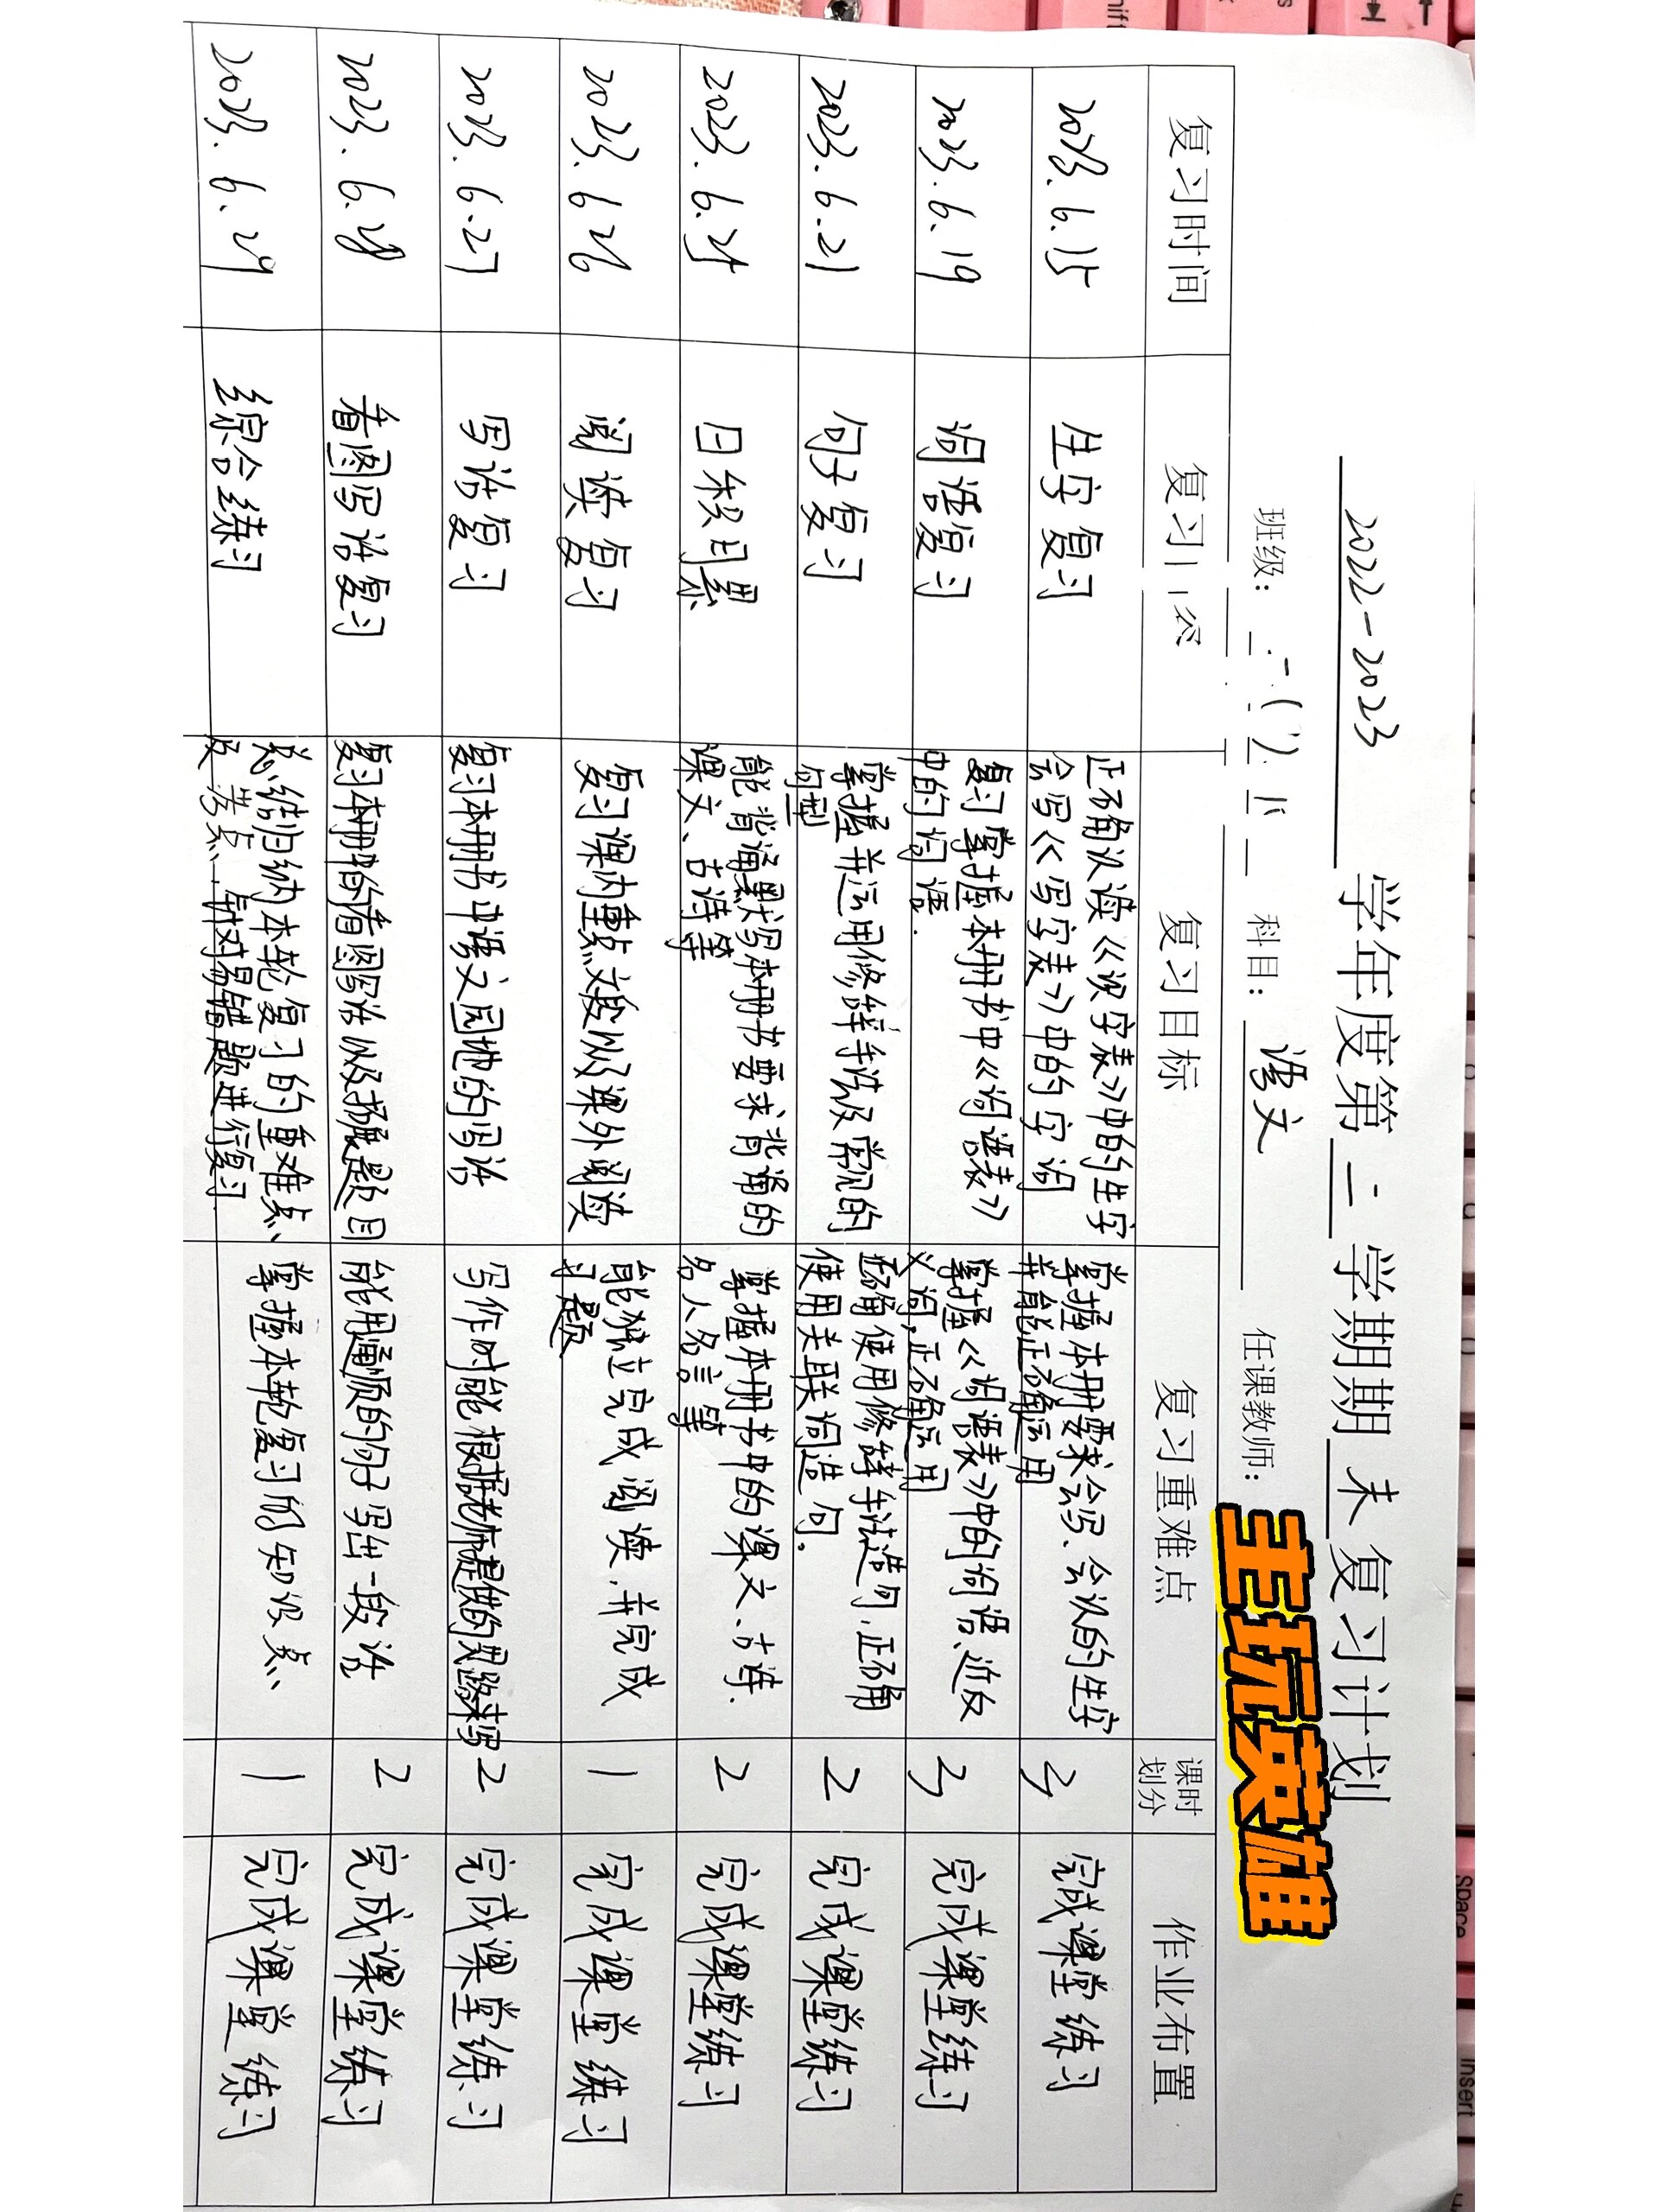 2022-2023 学年度第 二 学期期 末 复习计划
班级: 科目: 语文 任课教师:
王玩英雄
复习时间 复习 复习目标 复习重难点 课时划分 作业布置
2023.6.15 生字复习 正确认读《识字表》中的生字
会写《写字表》中的字词
掌握本册要求会写、会认的生字
并能正确运用
3 完成课堂练习
2023.6.19 词语复习 复习掌握本册书中《词语表》
中的词语.
掌握《词语表》中的词语、近反
义词,正确运用
3 完成课堂练习
2023.6.21 句子复习 掌握并运用修辞手法及常见的
句型
正确使用修辞手法造句,正确
使用关联词造句。
2 完成课堂练习
2023.6.25 日积月累 能背诵默写本册书要求背诵的
课文、古诗等
掌握本册书中的课文、古诗.
名人名言等
2 完成课堂练习
2023.6.26 阅读复习 复习课内重点文段以及课外阅读
能独立完成阅读,并完成
习题
1 完成课堂练习
2023.6.27 写话复习 复习本册书中语文园地的写话
写作时能根据老师提供的思路来写
2 完成课堂练习
2023.6.28 看图写话复习 复习本册书的看图写话以及拓展题目
能用通顺的句子写出一段话
2 完成课堂练习
2023.6.29 综合练习 总结归纳本轮复习的重难点、
及考点、针对易错题进行复习.
掌握本轮复习的知识点
1 完成课堂练习
space
insert